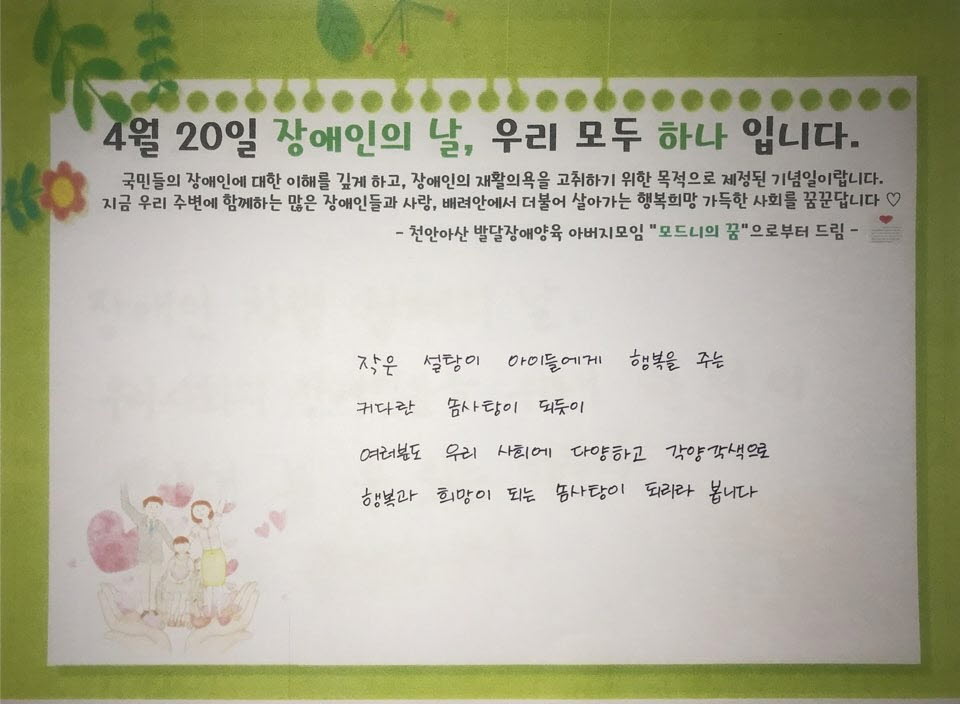 4월 20일 장애인의 날, 우리 모두 하나 입니다.
국민들의 장애인에 대한 이해를 깊게 하고, 장애인의 재활의욕을 고취하기 위한 목적으로 제정된 기념일이랍니다.
지금 우리 주변에 함께하는 많은 장애인들과 사랑, 배려안에서 더불어 살아가는 행복희망 가득한 사회를 꿈꾼답니다 ♡
- 천안아산 발달장애양육 아버지모임 "모드니의 꿈"으로부터 드림 -
작은 설탕이 아이들에게 행복을 주는
커다란 솜사탕이 되듯이
여러분도 우리 사회에 다양하고 각양각색으로
행복과 희망이 되는 솜사탕이 되리라 봅니다